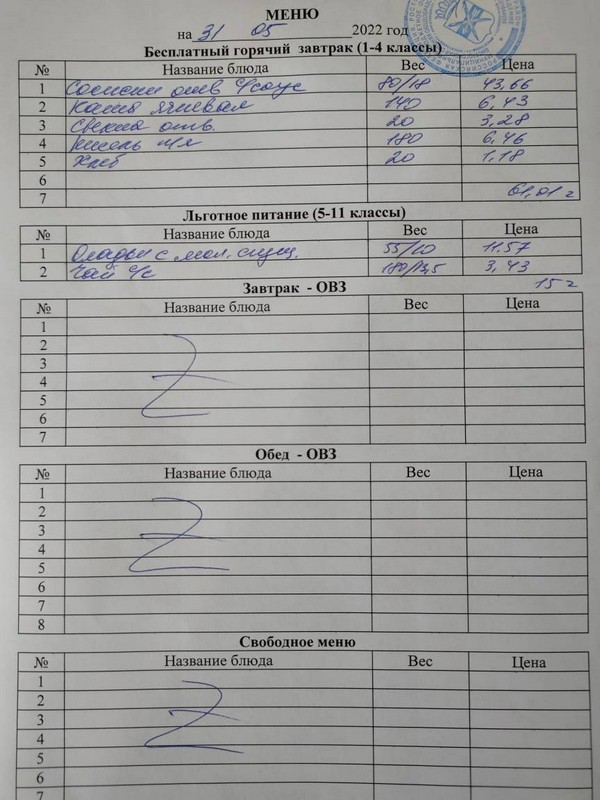 МЕНЮ
на 31 05 2022 год
Бесплатный горячий завтрак (1-4 классы)
№ Название блюда Вес Цена
1 Сосиски отв с/соус 80/18 43,66
2 Каша ячневая 140 6,43
3 Свекла отв. 20 3,28
4 Кисель п/я 180 6,46
5 Хлеб 20 1,18
6
7 61,01
Льготное питание (5-11 классы)
№ Название блюда Вес Цена
1 Оладьи с мол. сгущ. 55/10 11.57
2 Чай с/с 180/13,5 3,43
15
Завтрак - ОВЗ
№ Название блюда Вес Цена
1
2
3
4
5
6
7
Обед - ОВЗ
№ Название блюда Вес Цена
1
2
3
4
5
6
7
8
Свободное меню
№ Название блюда Вес Цена
1
2
3
4
5
6
7